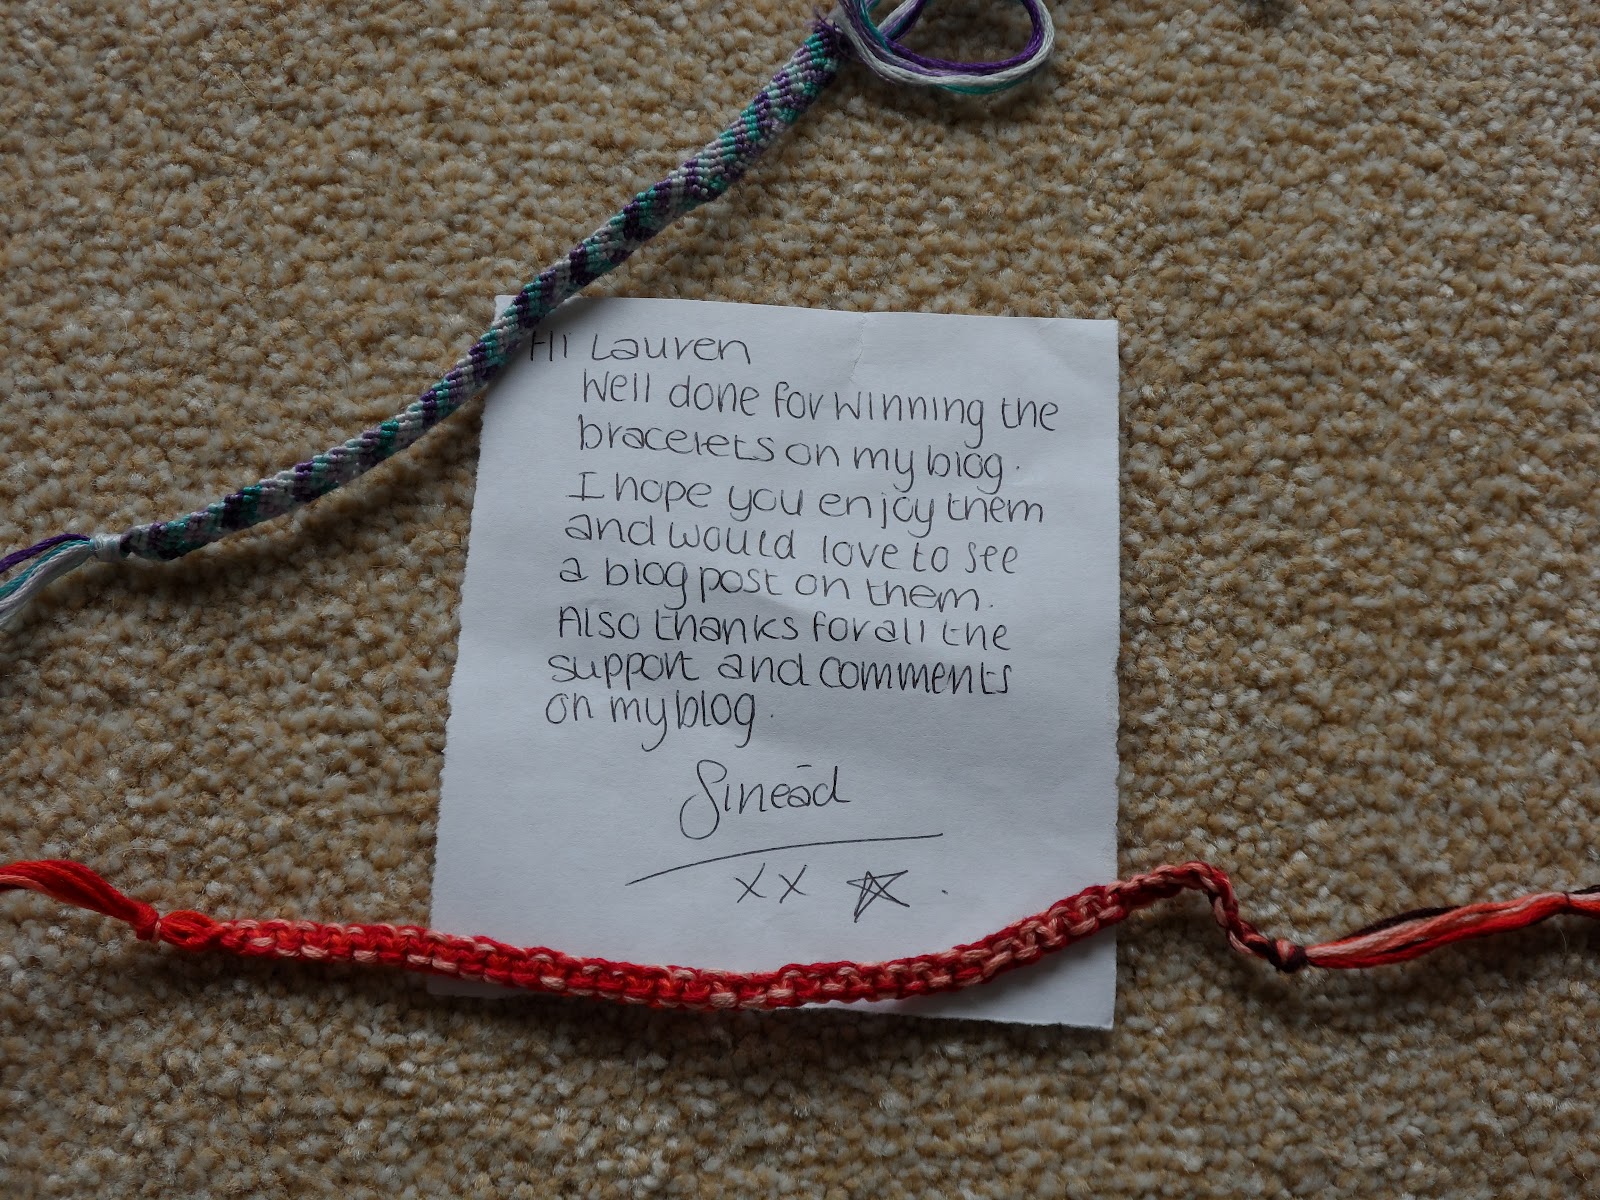 Hi Lauren
Well done for winning the
bracelets on my blog.
I hope you enjoy them
and would love to see
a blog post on them.
Also thanks for all the
support and comments
on my blog.
Sinéad
xx